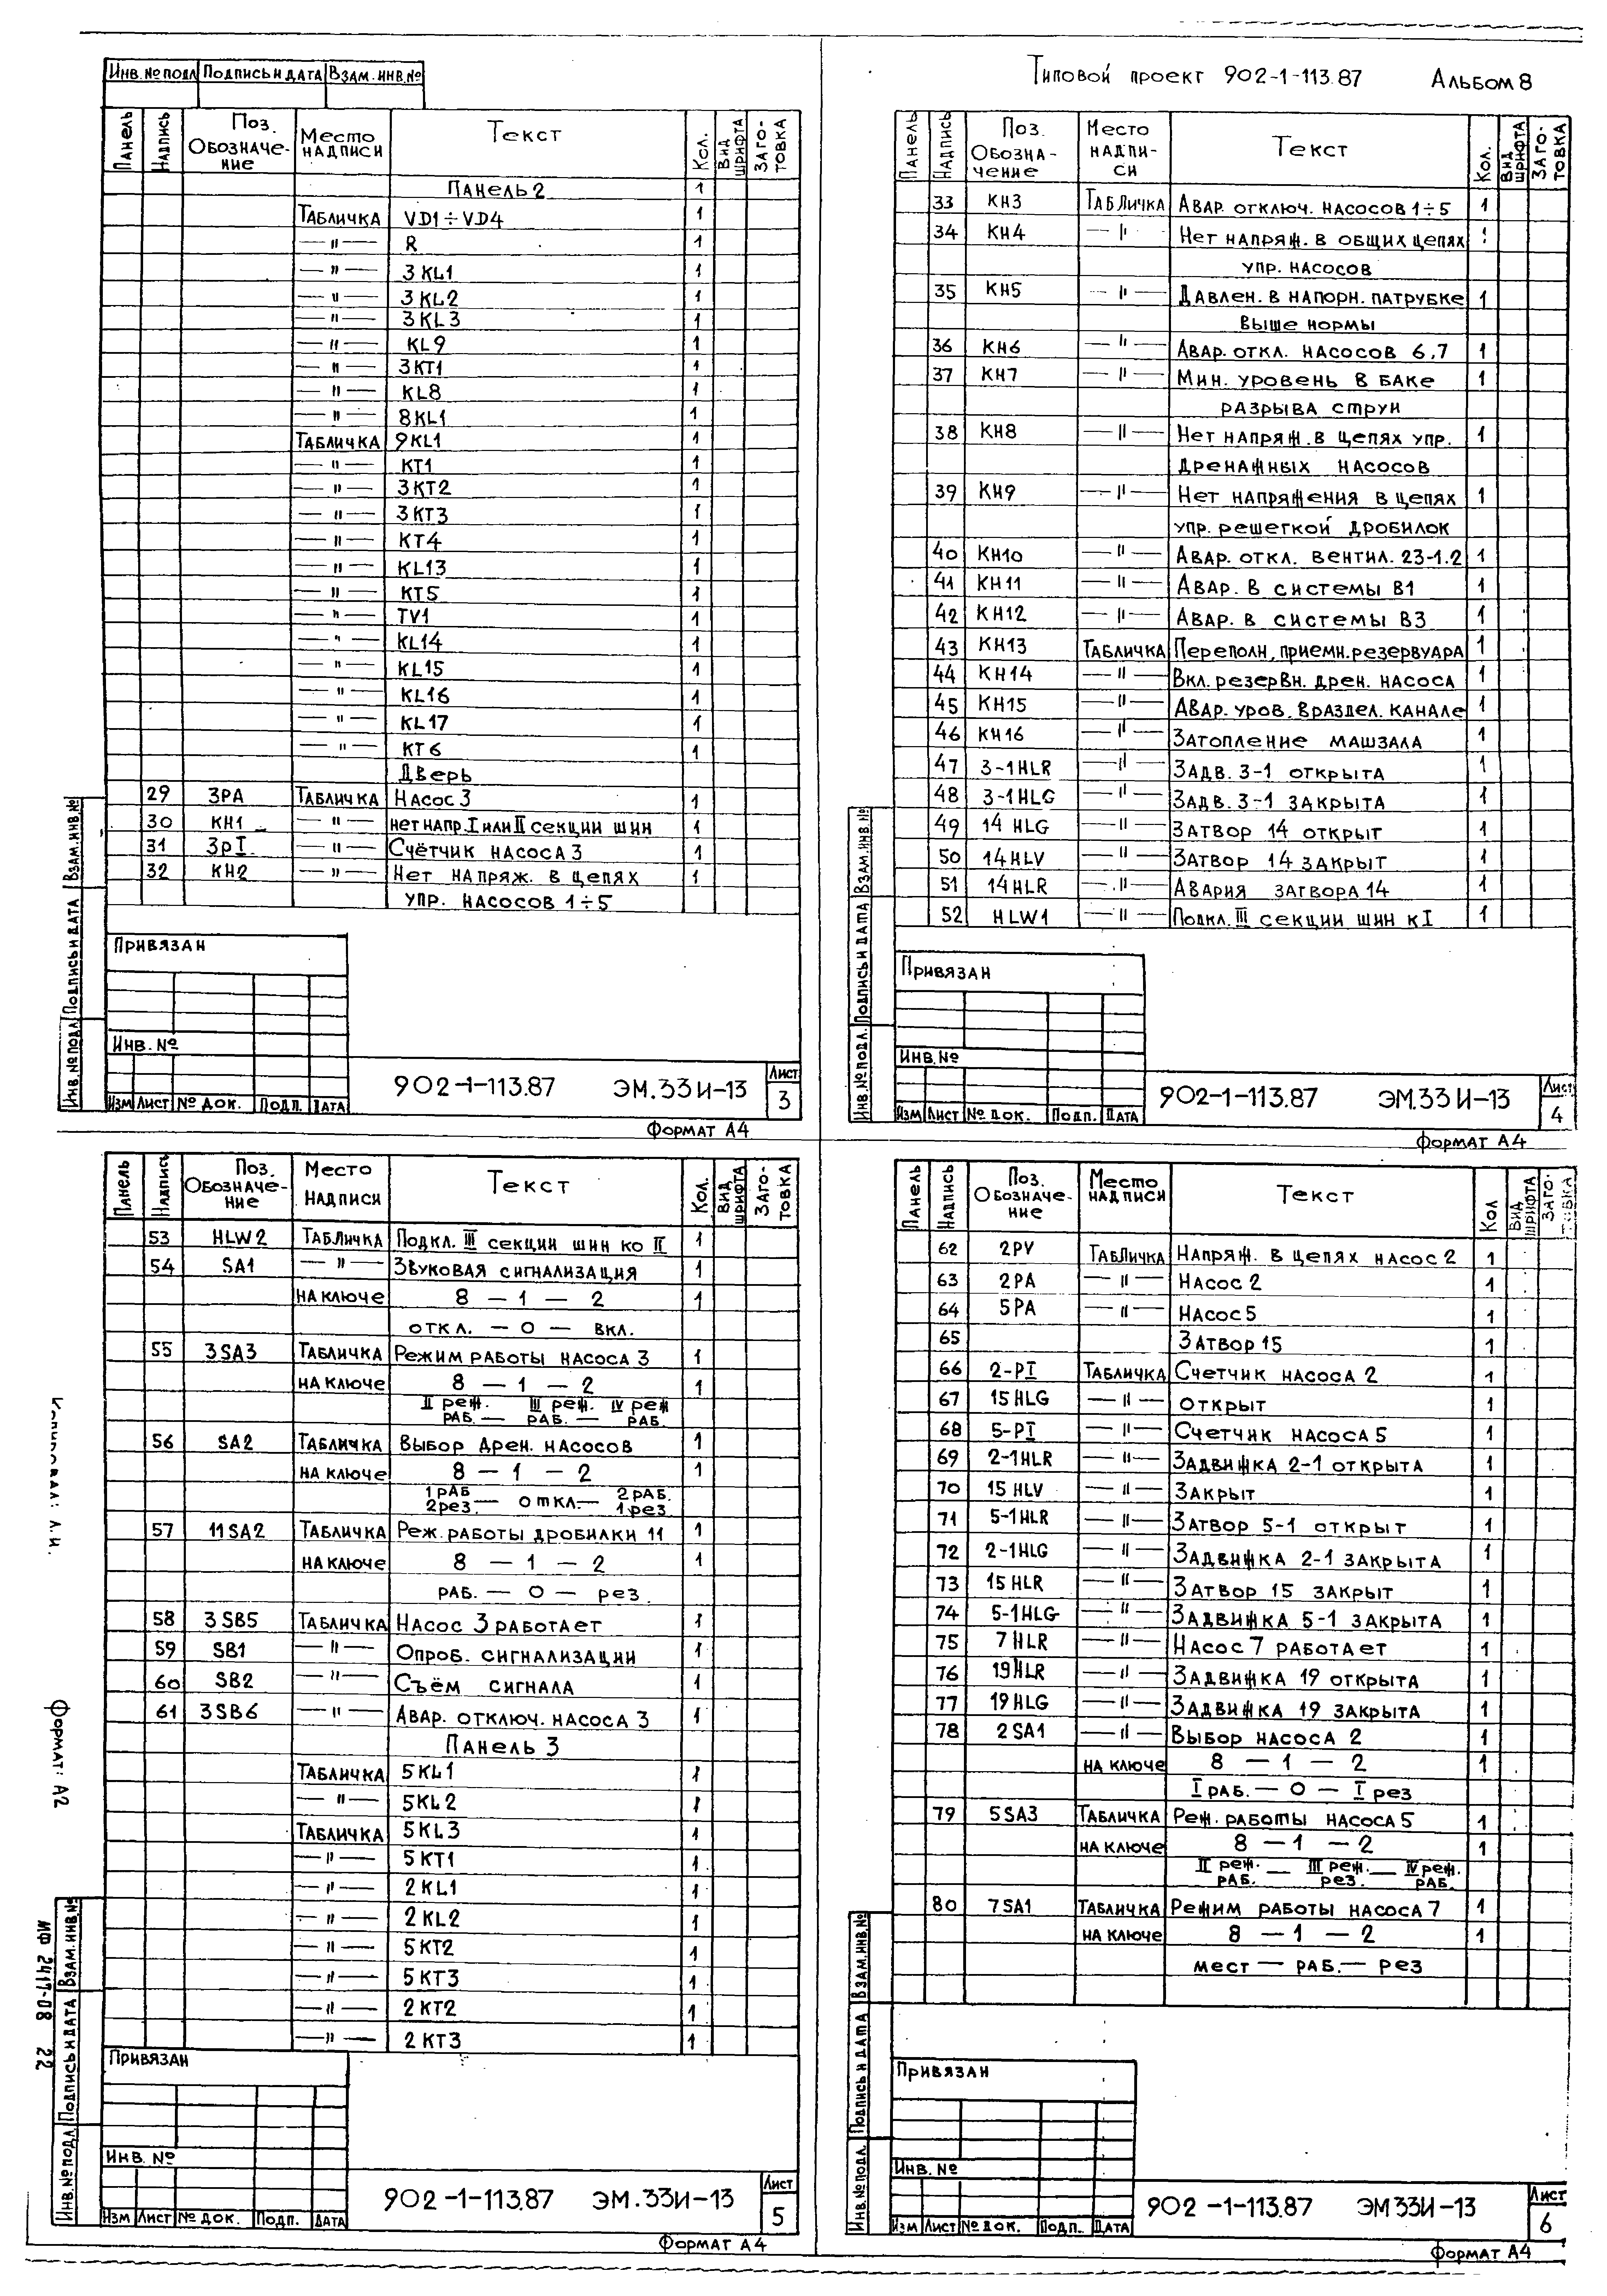 Инв. № подл Подпись и дата Взам. инв. №
Панель Надпись Поз. Обозначение Место надписи Текст Кол. Вид шрифта Заготовка
Панель 2 1
Табличка VD1÷VD4 1
—"— R 1
—"— 3KL1 1
—"— 3KL2 1
—"— 3KL3 1
—"— KL9 1
—"— 3KT1 1
—"— KL8 1
—"— 8KL1 1
Табличка 9KL1 1
—"— KT1 1
—"— 3KT2 1
—"— 3KT3 1
—"— KT4 1
—"— KL13 1
—"— KT5 1
—"— TV1 1
—"— KL14 1
—"— KL15 1
—"— KL16 1
—"— KL17 1
—"— KT6 1
Дверь
29 3PA Табличка Насос 3 1
30 KH1 —"— нет напр. I или II секции шин 1
31 3PI —"— Счётчик насоса 3 1
32 KH2 —"— Нет напряж. в цепях 1
упр. насосов 1÷5
Привязан
Инв. №
Изм Лист № док. Подп. Дата
902-1-113.87 ЭМ.33И-13 Лист 3
Формат А4
Инв. № подл Подпись и дата Взам. инв. №
Типовой проект 902-1-113.87 Альбом 8
Панель Надпись Поз. Обозначение Место надписи Текст Кол. Вид шрифта Заготовка
33 KH3 Табличка Авар. отключ. насосов 1÷5 1
34 KH4 —"— Нет напряж. в общих цепях 1
упр. насосов
35 KH5 —"— Давлен. в напорн. патрубке 1
выше нормы
36 KH6 —"— Авар. откл. насосов 6,7 1
37 KH7 —"— Мин. уровень в баке 1
разрыва струи
38 KH8 —"— Нет напряж. в цепях упр. 1
дренажных насосов
39 KH9 —"— Нет напряжения в цепях 1
упр. решеткой дробилок
40 KH10 —"— Авар. откл. вентил. 23-1.2 1
41 KH11 —"— Авар. в системы В1 1
42 KH12 —"— Авар. в системы В3 1
43 KH13 Табличка Переполн. приемн. резервуара 1
44 KH14 —"— Вкл. резервн. дрен. насоса 1
45 KH15 —"— Авар. уров. в раздел. канале 1
46 KH16 —"— Затопление машзала 1
47 3-1HLR —"— Задв. 3-1 открыта 1
48 3-1HLG —"— Задв. 3-1 закрыта 1
49 14 HLG —"— Затвор 14 открыт 1
50 14HLV —"— Затвор 14 закрыт 1
51 14HLR —"— Авария затвора 14 1
52 HLW1 —"— Подкл. III секции шин к I 1
Привязан
Инв. №
Изм Лист № док. Подп. Дата
902-1-113.87 ЭМ.33И-13 Лист 4
Формат А4
Инв. № подл. Подпись и дата Взам. инв. №
Панель Надпись Поз. Обозначение Место надписи Текст Кол. Вид шрифта Заготовка
53 HLW2 Табличка Подкл. III секции шин ко II 1
54 SA1 —"— Звуковая сигнализация 1
на ключе 8 — 1 — 2 1
откл. — 0 — вкл.
55 3SA3 Табличка Режим работы насоса 3 1
на ключе 8 — 1 — 2 1
II реж. III реж. IV реж
раб. — раб. — раб.
56 SA2 Табличка Выбор дрен. насосов 1
на ключе 8 — 1 — 2 1
1 раб 2 раб.
2 рез. — откл. — 1 рез
57 11SA2 Табличка Реж. работы дробилки 11 1
на ключе 8 — 1 — 2 1
раб. — 0 — рез.
58 3SB5 Табличка Насос 3 работает 1
59 SB1 —"— Опроб. сигнализации 1
60 SB2 —"— Съём сигнала 1
61 3SB6 —"— Авар. отключ. насоса 3 1
Панель 3
Табличка 5KL1 1
—"— 5KL2 1
Табличка 5KL3 1
—"— 5KT1 1
—"— 2KL1 1
—"— 2KL2 1
—"— 5KT2 1
—"— 5KT3 1
—"— 2KT2 1
—"— 2KT3 1
Привязан
Инв. №
Изм Лист № док. Подп. Дата
902-1-113.87 ЭМ.33И-13 Лист 5
Формат А4
Инв. № подл Подпись и дата Взам. инв. №
Копировал: Л.И.
Формат: А2
МФ 2417-08 22
Панель Надпись Поз. Обозначение Место надписи Текст Кол Вид шрифта Заготовка
62 2PV Табличка Напряж. в цепях насос 2 1
63 2PA —"— Насос 2 1
64 5PA —"— Насос 5 1
65 Затвор 15 1
66 2-PI Табличка Счетчик насоса 2 1
67 15HLG —"— открыт 1
68 5-PI —"— Счетчик насоса 5 1
69 2-1HLR —"— Задвижка 2-1 открыта 1
70 15HLV —"— Закрыт 1
71 5-1HLR —"— Затвор 5-1 открыт 1
72 2-1HLG —"— Задвижка 2-1 закрыта 1
73 15HLR —"— Затвор 15 закрыт 1
74 5-1HLG —"— Задвижка 5-1 закрыта 1
75 7HLR —"— Насос 7 работает 1
76 19HLR —"— Задвижка 19 открыта 1
77 19HLG —"— Задвижка 19 закрыта 1
78 2SA1 —"— Выбор насоса 2 1
на ключе 8 — 1 — 2 1
I раб. — 0 — I рез
79 5SA3 Табличка Реж. работы насоса 5 1
на ключе 8 — 1 — 2 1
II реж. — III реж. — IV реж.
раб. рез. раб.
80 7SA1 Табличка Режим работы насоса 7 1
на ключе 8 — 1 — 2 1
мест — раб. — рез
Привязан
Инв. №
Изм Лист № док. Подп. Дата
902-1-113.87 ЭМ 33И-13 Лист 6
Формат А4
Инв. № подл. Подпись и дата Взам. инв. №